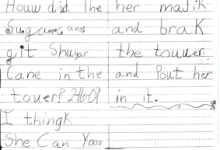 Houw did the her majik
Sugar canes and brak
git Shuyar the touwer
Cane in the and Pout her
touwer? in it.
I thingk
She Can Yooz